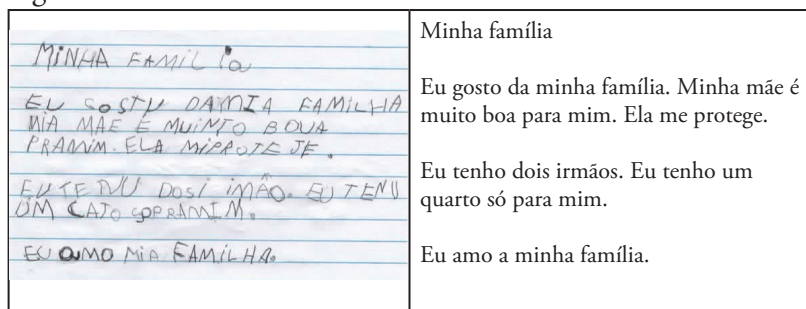 MINHA FAMILia
EU GOSTU DAMIA FAMILHA
MIA MAE E MUINTO BOUA
PRAMIM. ELA MIPROTEJE.
EUTENU DOSI IMÃO. EU TENU
UM CATO SOPRAMIM.
EU AMO MIA FAMILHA.
Minha família
Eu gosto da minha família. Minha mãe é
muito boa para mim. Ela me protege.
Eu tenho dois irmãos. Eu tenho um
quarto só para mim.
Eu amo a minha família.